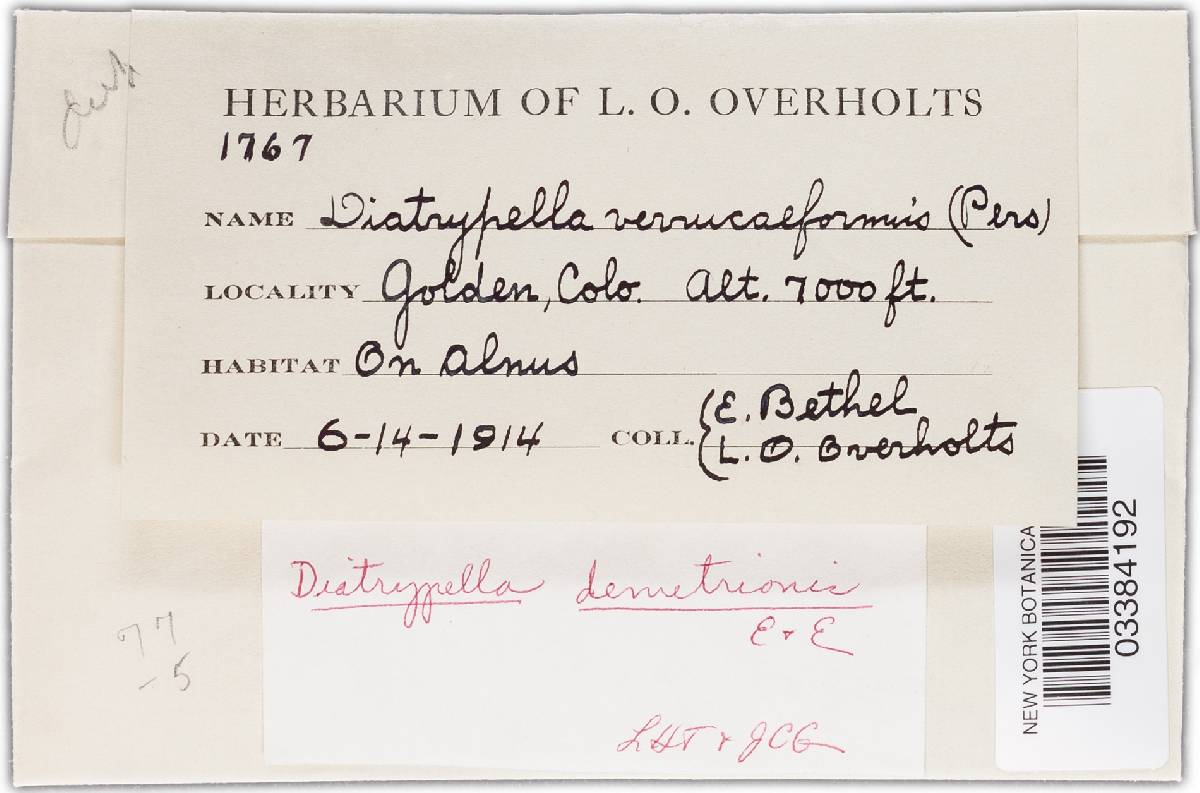 HERBARIUM OF L. O. OVERHOLTS
1767
NAME Diatrypella verrucaeformis (Pers)
LOCALITY Golden, Colo. Alt. 7000 ft.
HABITAT On Alnus
DATE 6-14-1914 COLL. E. Bethel
L. O. Overholts
Diatrypella demetrionis
E & E
LHT & JCG
77
- 5
NEW YORK BOTANICA
03384192